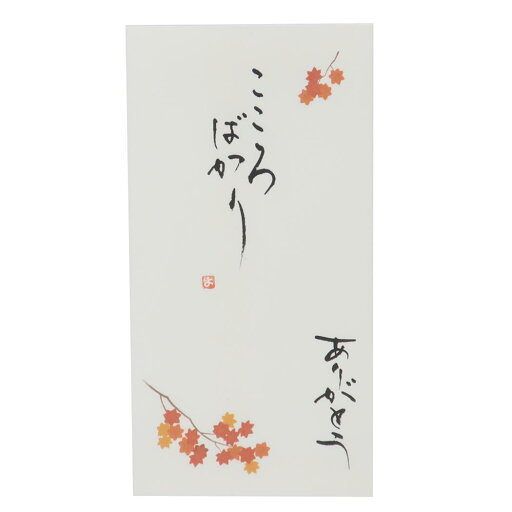 こころ
ばかり
ありがとう